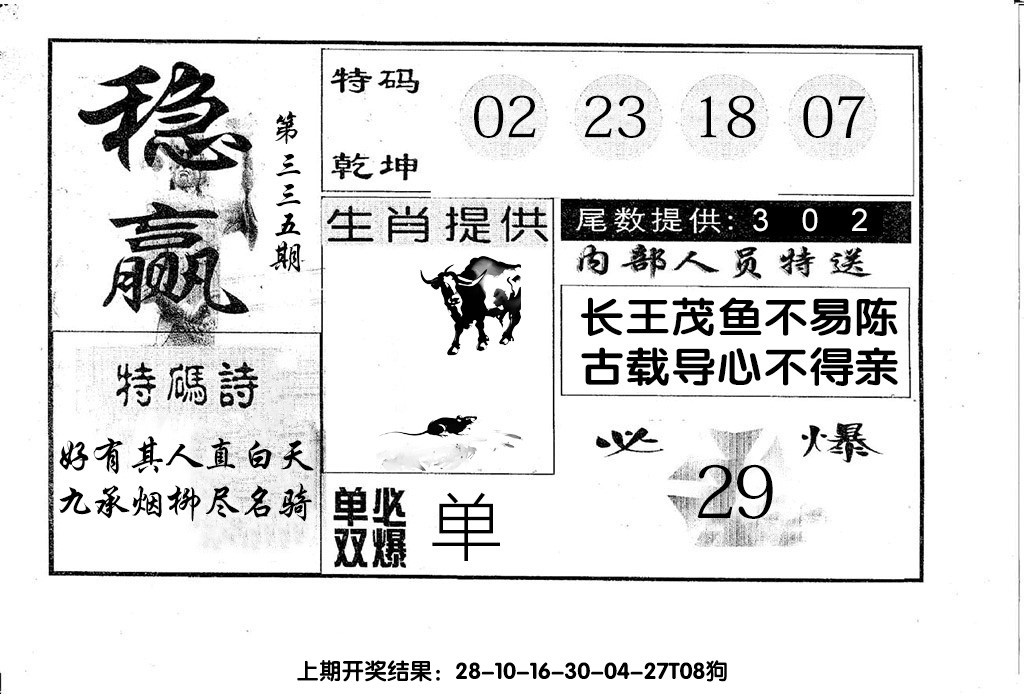 稳赢
第三三五期
特码
乾坤
02 23 18 07
生肖提供
尾数提供: 3 0 2
内部人员特送
长王茂鱼不易陈
古载导心不得亲
特碼詩
好有其人直白天
九承烟柳尽名骑
单双
必爆
单
必爆
29
上期开奖结果：28-10-16-30-04-27T08狗